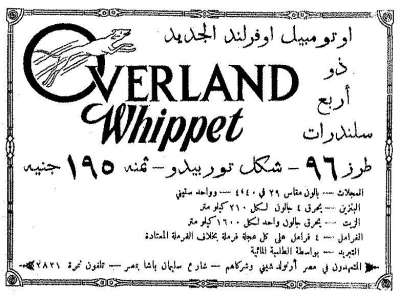 اوتومبيل اوفرلند الجديد
OVERLAND
Whippet
ذو
أربع
سلندرات
طرز ٩٦ – شكل توربيدو – ثمنه ١٩٥ جنيه
العجلات — بالون مقاس ٢٩ في ٤٫٤٠ — وواحده ستبني
البنزين — يحرق ٤ جالون لسكل ٢١٠ كيلو متر
الزيت — يحرق جالون واحد لسكل ١٦٠٠ كيلو متر
الفرامل — ٤ فرامل على كل عجلة فرملة بخلاف الفرملة المعتادة
التبريد — بواسطة الطلمبة المائية
المتعهدون في مصر أرنولد شيني وشركاهم — شارع سليمان باشا بمصر — تلفون نمرة ٢٨٣١